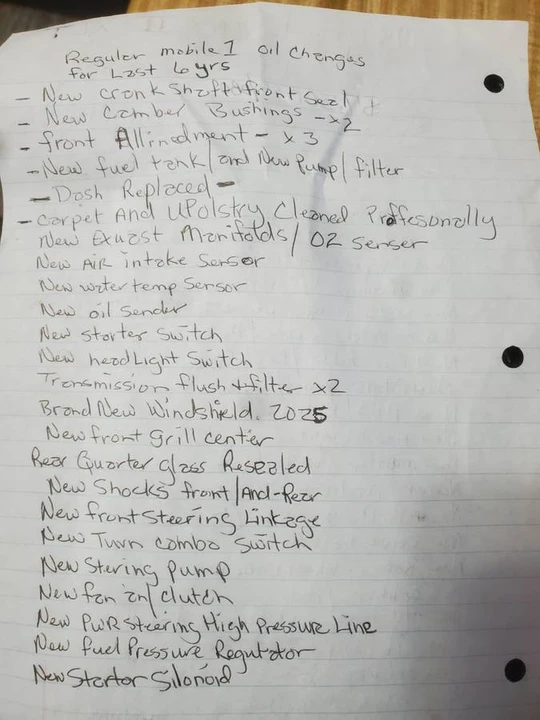 Regular mobile 1 oil changes
for Last 6 yrs
- New crank shaft front Seal
- New Camber Bushings - x2
- front Allindment - x 3
- New fuel tank/and New Pump/filter
- Dash Replaced -
- Carpet And UPolstry Cleaned Proffesonally
New Exhast Manifolds/ O2 senser
New AiR intake Sensor
New water temp Sensor
New oil sender
New starter Switch
New headLight Switch
Transmission flush + filter x2
Brand New Windshield. 2025
New front grill center
Rear Quarter glass Resealed
New Shocks front/And-Rear
New front Steering Linkage
New Turn combo Switch
New Stering Pump
New fan an/clutch
New PWR Steering High Pressure Line
New fuel Pressure Regutator
New Startor Silonoid